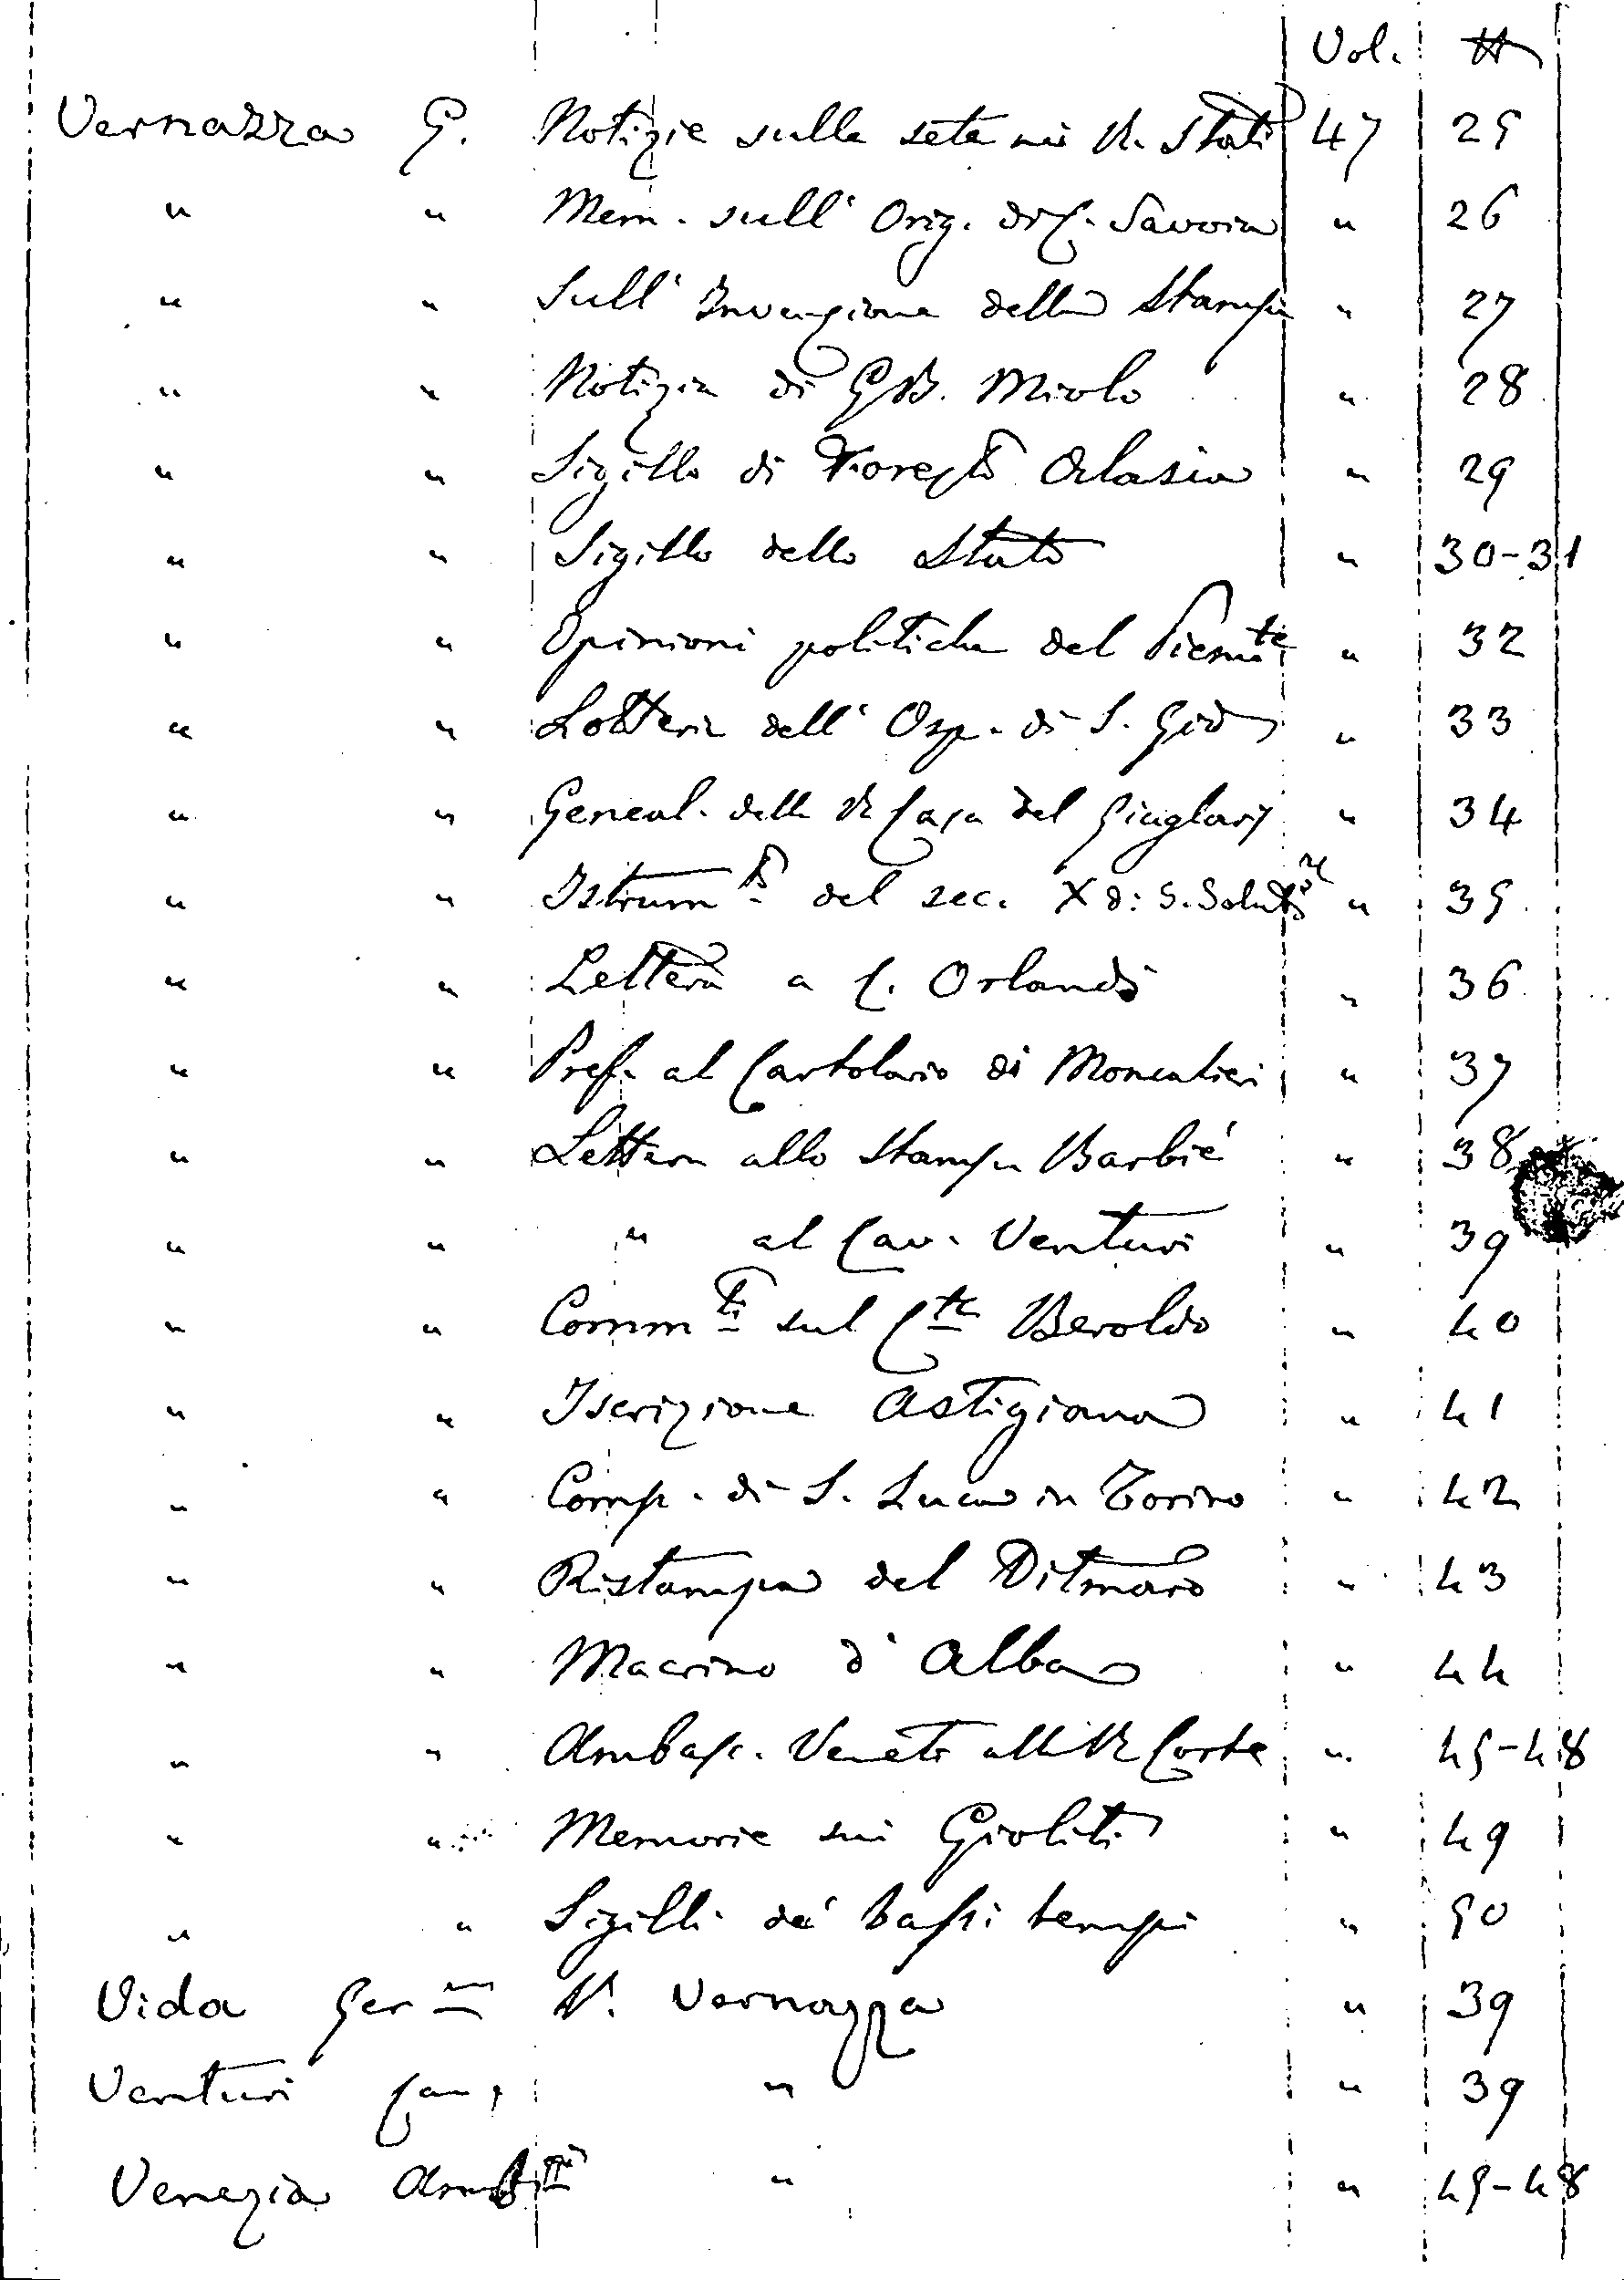 Vol. #
Vernazza G. Notizie sulle sete nei R. Stati 47 25
" " Mem. sull' Orig. di C. Savoia " 26
" " Sull' Invenzione della Stampa " 27
" " Notizia di GB. Miolo " 28
" " Sigillo di Foresto Alasia " 29
" " Sigillo dello Stato " 30-31
" " Opinioni politiche del Piemte " 32
" " Lotteria dell' Osp. di S. Gio " 33
" " Geneal. della R Casa del Giuglaris " 34
" " Istrumto del sec. X di S. Solutore " 35
" " Lettera a C. Orlandi " 36
" " Pref. al Cartolario di Moncalieri " 37
" " Lettera allo Stamp. Barbié " 38
" " " al Cav. Venturi " 39
" " Commti sul Cte Beroldo " 40
" " Iscrizione Astigiana " 41
" " Comp. di S. Luca in Torino " 42
" " Ristampa del Ditmaro " 43
" " Macrino d' Alba " 44
" " Ambasc. Veneti alla R Corte " 45-48
" " Memorie sui Gioliti " 49
" " Sigilli de' bassi tempi " 50
Vida Germ V. Vernazza " 39
Venturi Cav. " " 39
Venezia Ambri " " 45-48